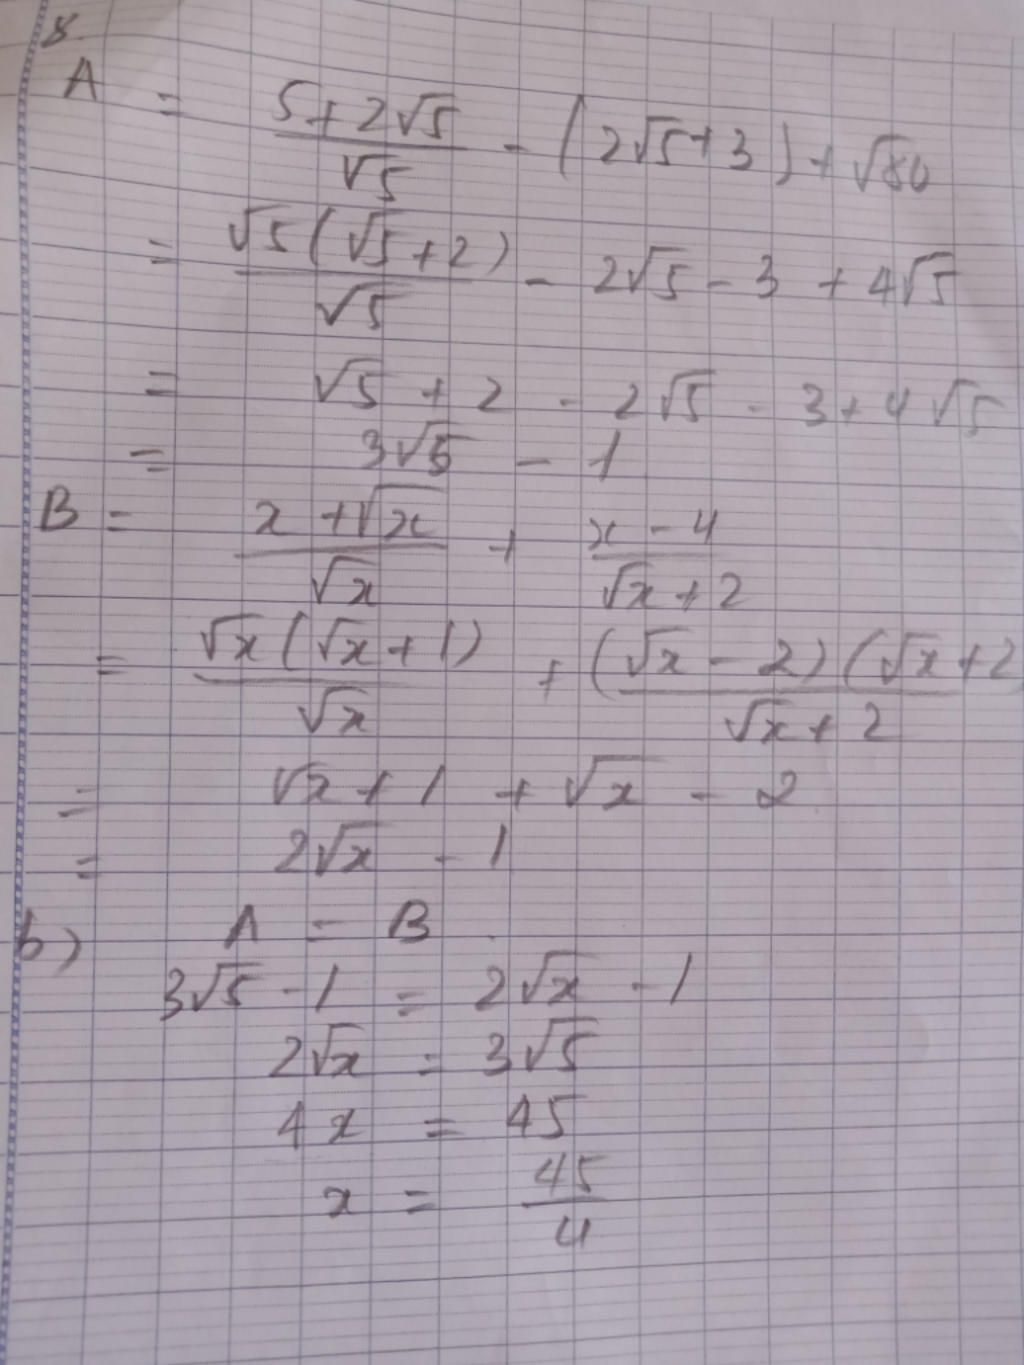 8.
A = \frac{5+2\sqrt{5}}{\sqrt{5}} - (2\sqrt{5}+3) + \sqrt{80}
= \frac{\sqrt{5}(\sqrt{5}+2)}{\sqrt{5}} - 2\sqrt{5} - 3 + 4\sqrt{5}
= \sqrt{5} + 2 - 2\sqrt{5} - 3 + 4\sqrt{5}
= 3\sqrt{5} - 1
B = \frac{x+\sqrt{x}}{\sqrt{x}} + \frac{x-4}{\sqrt{x}+2}
= \frac{\sqrt{x}(\sqrt{x}+1)}{\sqrt{x}} + \frac{(\sqrt{x}-2)(\sqrt{x}+2}{\sqrt{x}+2}
= \sqrt{x} + 1 + \sqrt{x} - 2
= 2\sqrt{x} - 1
b) A = B
3\sqrt{5} - 1 = 2\sqrt{x} - 1
2\sqrt{x} = 3\sqrt{5}
4x = 45
x = \frac{45}{4}